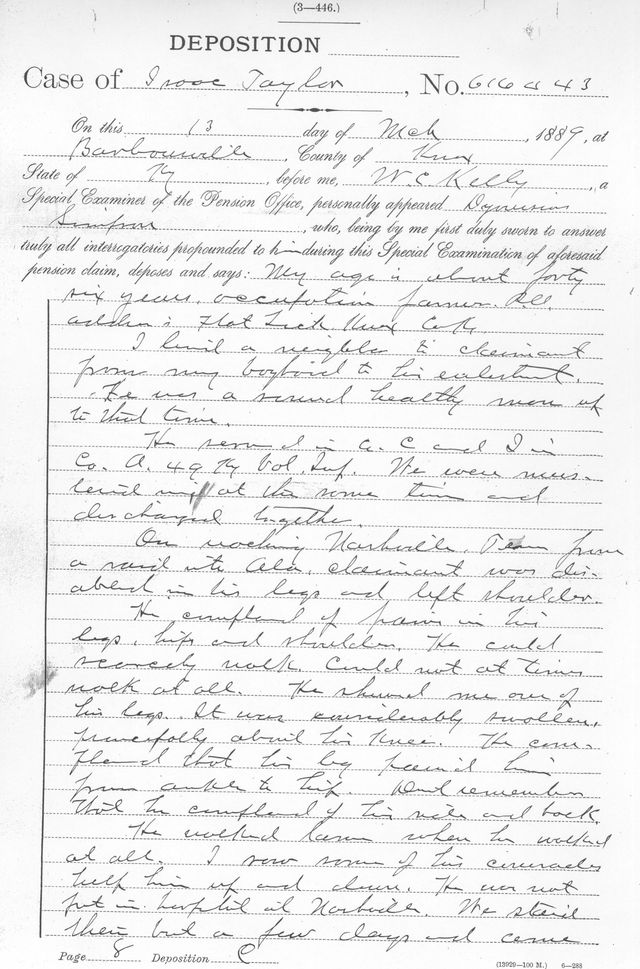 (3—446.)
DEPOSITION
Case of Isaac Taylor, No. 616443
On this 13 day of Mch, 1889, at
Barbourville, County of Knox
State of Ky, before me, W. C. Kelly, a
Special Examiner of the Pension Office, personally appeared
Simpson, who, being by me first duly sworn to answer
truly all interrogatories propounded to him during this Special Examination of aforesaid
pension claim, deposes and says: My age is about forty
six years, occupation farmer. P.O.
address Flat Lick Knox Co Ky
I lived a neighbor to claimant
from my boyhood to his enlistment.
He was a sound healthy man up
to that time.
He served in a. C and I in
Co. A. 49 Ky Vol. Inf. We were mus-
tered in at the same time and
discharged together.
On reaching Nashville, Tenn from
a raid into Ala. claimant was dis-
abled in his legs and left shoulder.
He complained of pains in his
legs, hips and shoulder. He could
scarcely walk. Could not at times
walk at all. He showed me one of
his legs. It was considerably swollen,
principally about his knee. He com-
plained that his leg pained him
from ankle to hip. Dont remember
that he complained of his side and back.
He walked lame when he walked
at all. I saw some of his comrades
help him up and down. He was not
put in hospital at Nashville. We staid
there but a few days and came
Page 8 Deposition C
(13929—100 M.) 6—288